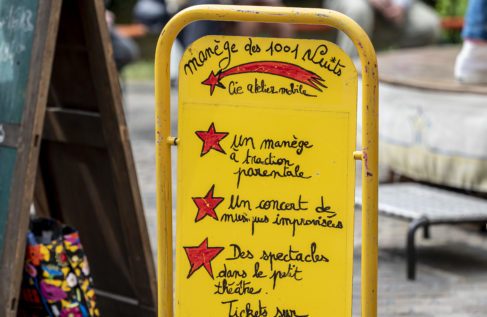 manège des 1001 Nuits
Cie atelier mobile
Un manège
à traction
parentale
Un concert de
musiques improvisées
Des spectacles
dans le petit
théâtre
Tickets sur